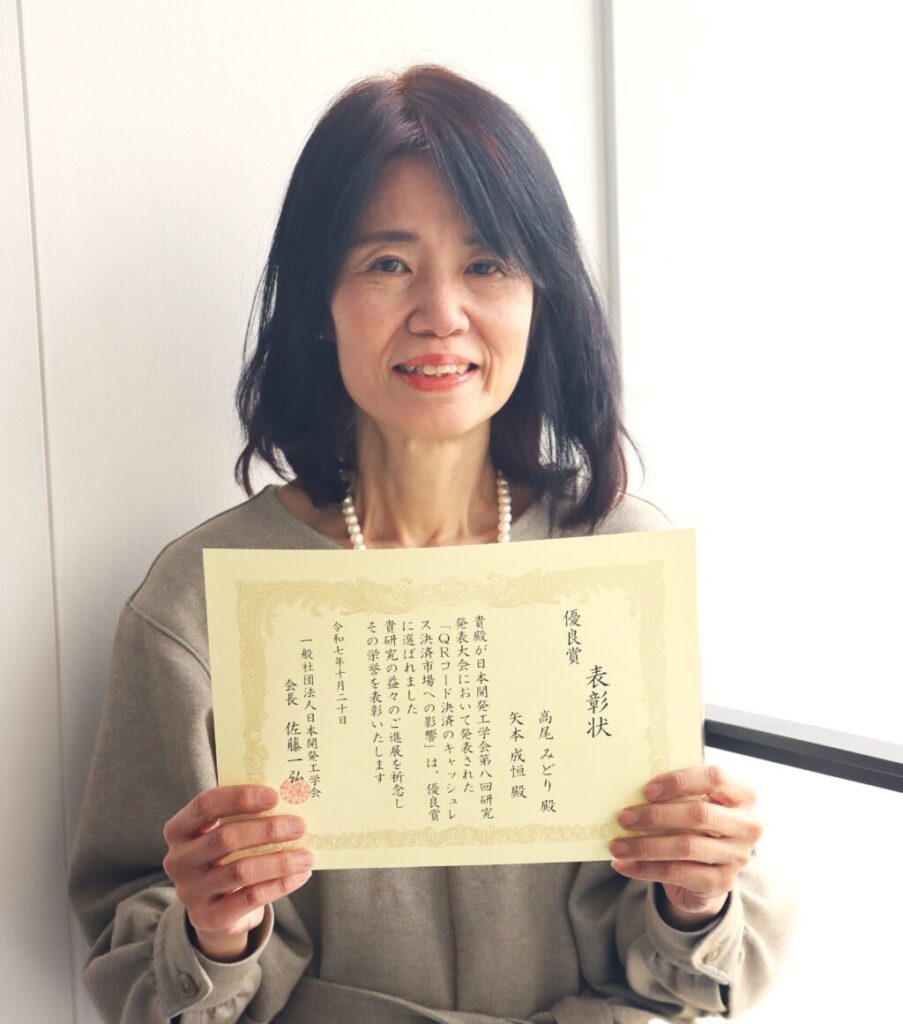 表彰状
優良賞
高尾 みどり 殿
矢本 成恒 殿
貴殿が日本開発工学会第八回研究
発表大会において発表された
「QRコード決済のキャッシュレ
ス決済市場への影響」は、優良賞
に選ばれました
貴研究の益々のご進展を祈念し
その栄誉を表彰いたします
令和七年十月二十日
一般社団法人日本開発工学会
会長 佐藤一弘